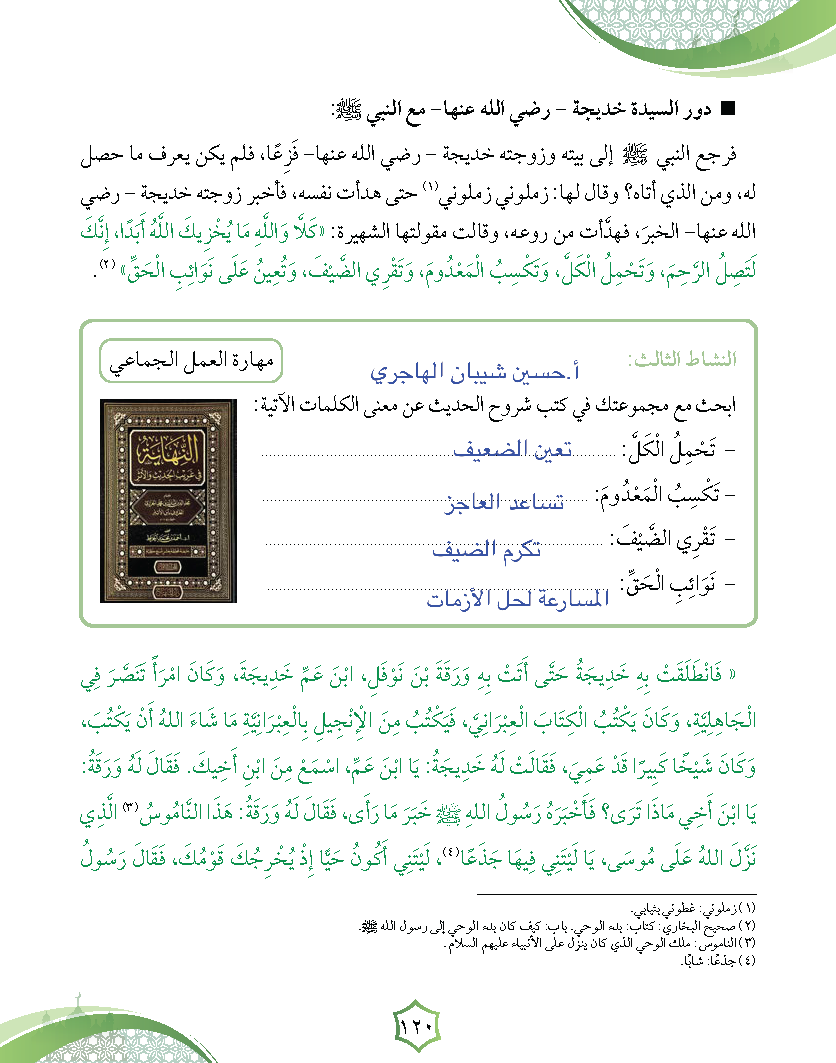 ■ دور السيدة خديجة - رضي الله عنها- مع النبي ﷺ:
فرجع النبي ﷺ إلى بيته وزوجته خديجة - رضي الله عنها- فَزِعًا، فلم يكن يعرف ما حصل
له، ومن الذي أتاه؟ وقال لها: زملوني زملوني(١) حتى هدأت نفسه، فأخبر زوجته خديجة - رضي
الله عنها- الخبرَ، فهدَّأت من روعه، وقالت مقولتها الشهيرة: «كَلَّا وَاللَّهِ مَا يُخْزِيكَ اللَّهُ أَبَدًا، إِنَّكَ
لَتَصِلُ الرَّحِمَ، وَتَحْمِلُ الْكَلَّ، وَتَكْسِبُ الْمَعْدُومَ، وَتَقْرِي الضَّيْفَ، وَتُعِينُ عَلَى نَوَائِبِ الْحَقِّ»(٢).
النشاط الثالث:
مهارة العمل الجماعي
أ.حسين شيبان الهاجري
ابحث مع مجموعتك في كتب شروح الحديث عن معنى الكلمات الآتية:
- تَحْمِلُ الْكَلَّ: تعين الضعيف
- تَكْسِبُ الْمَعْدُومَ: تساعد العاجز
- تَقْرِي الضَّيْفَ: تكرم الضيف
- نَوَائِبِ الْحَقِّ: المسارعة لحل الأزمات
النهاية
في غريب الحديث والأثر
« فَانْطَلَقَتْ بِهِ خَدِيجَةُ حَتَّى أَتَتْ بِهِ وَرَقَةَ بْنَ نَوْفَلِ، ابْنَ عَمِّ خَدِيجَةَ، وَكَانَ امْرَأً تَنَصَّرَ فِي
الْجَاهِلِيَّةِ، وَكَانَ يَكْتُبُ الْكِتَابَ الْعِبْرَانِيَّ، فَيَكْتُبُ مِنَ الْإِنْجِيلِ بِالْعِبْرَانِيَّةِ مَا شَاءَ اللهُ أَنْ يَكْتُبَ،
وَكَانَ شَيْخًا كَبِيرًا قَدْ عَمِيَ، فَقَالَتْ لَهُ خَدِيجَةُ: يَا ابْنَ عَمِّ، اسْمَعْ مِنَ ابْنِ أَخِيكَ. فَقَالَ لَهُ وَرَقَةُ:
يَا ابْنَ أَخِي مَاذَا تَرَى؟ فَأَخْبَرَهُ رَسُولُ اللهِ ﷺ خَبَرَ مَا رَأَى، فَقَالَ لَهُ وَرَقَةُ: هَذَا النَّامُوسُ(٣) الَّذِي
نَزَّلَ اللهُ عَلَى مُوسَى، يَا لَيْتَنِي فِيهَا جَذَعًا(٤)، لَيْتَنِي أَكُونُ حَيًّا إِذْ يُخْرِجُكَ قَوْمُكَ، فَقَالَ رَسُولُ
(١) زملوني: غطوني بثيابي.
(٢) صحيح البخاري: كتاب: بدء الوحي. باب: كيف كان بدء الوحي إلى رسول الله ﷺ.
(٣) الناموس: ملك الوحي الذي كان ينزل على الأنبياء عليهم السلام.
(٤) جذعًا: شابًا.
١٢٠